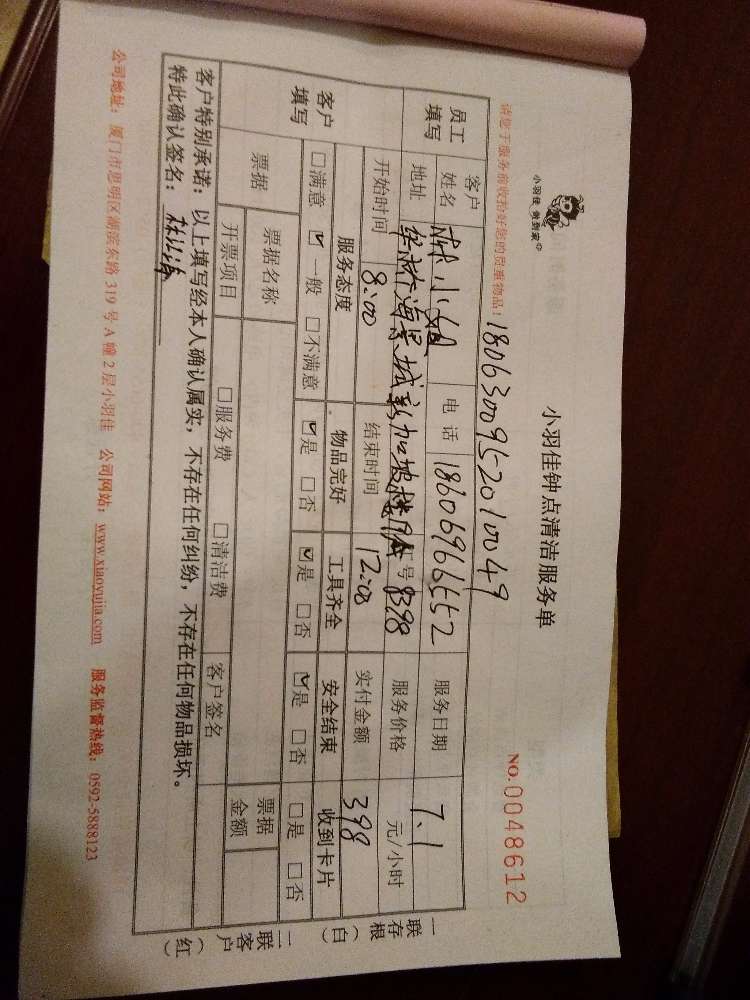 小羽佳 做到家
小羽佳钟点清洁服务单
请您于服务前收拾好您的贵重物品!
1806300952010049
NO.0048612
员工填写
客户姓名 林小姐 电话 18606966552 服务日期 7.1
地址 华林海景城新加坡楼 工号 8398 服务价格 元/小时
开始时间 8:00 结束时间 12:00 实付金额 398
客户填写
服务态度 物品完好 工具齐全 安全结束 收到卡片
□满意 ☑一般 □不满意 ☑是 □否 ☑是 □否 ☑是 □否 □是 □否
票据 票据名称 客户签名 票据金额
开票项目 □服务费 □清洁费
客户特别承诺:以上填写经本人确认属实,不存在任何纠纷,不存在任何物品损坏。
特此确认签名:
公司地址:厦门市思明区湖滨东路 319 号 A 幢 2 层小羽佳 公司网站:www.xiaoyujia.com 服务监督热线:0592-5888123
一联存根(白)
二联客户(红)